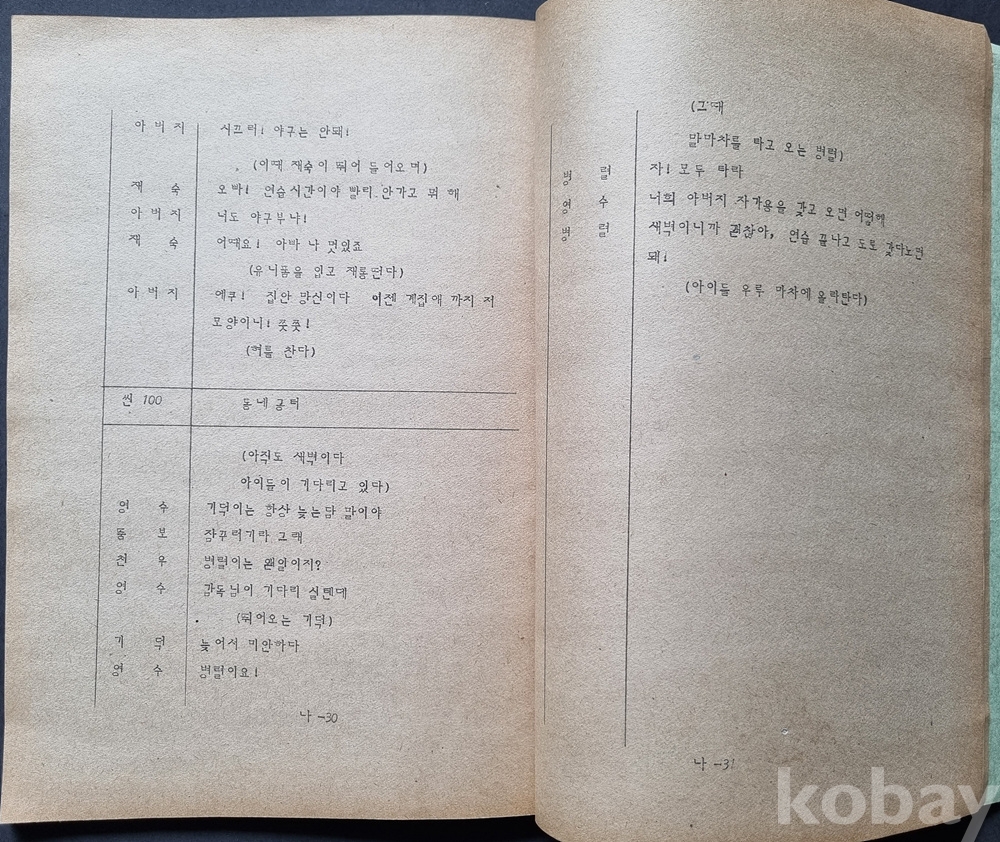 아버지 시끄러! 야구는 안돼!
(이때 재숙이 뛰어 들어오며)
재숙 오빠! 연습시간이야 빨리 안가고 뭐 해
아버지 너도 야구부냐!
재숙 어때요! 아빠 나 멋있죠
(유니폼을 입고 재롱떤다)
아버지 에쿠! 집안 망신이다 이젠 계집애 까지 저
모양이니! 쯧쯧!
(혀를 찬다)
씬 100 동네공터
(아직도 새벽이다
아이들이 기다리고 있다)
영수 기덕이는 항상 늦는담 말이야
뚱보 잠꾸러기라 그래
천우 병렬이는 왠일이지?
영수 감독님이 기다리 실텐데
(뛰어오는 기덕)
기덕 늦어서 미안하다
영수 병렬이요!
나 -30
(그때
말마차를 타고 오는 병렬)
병렬 자! 모두 타라
영수 너희 아버지 자가용을 갖고 오면 어떻해
병렬 새벽이니까 괜찮아, 연습 끝나고 도로 갖다노면
돼!
(아이들 우루 마차에 올라탄다)
나 -31
kobay